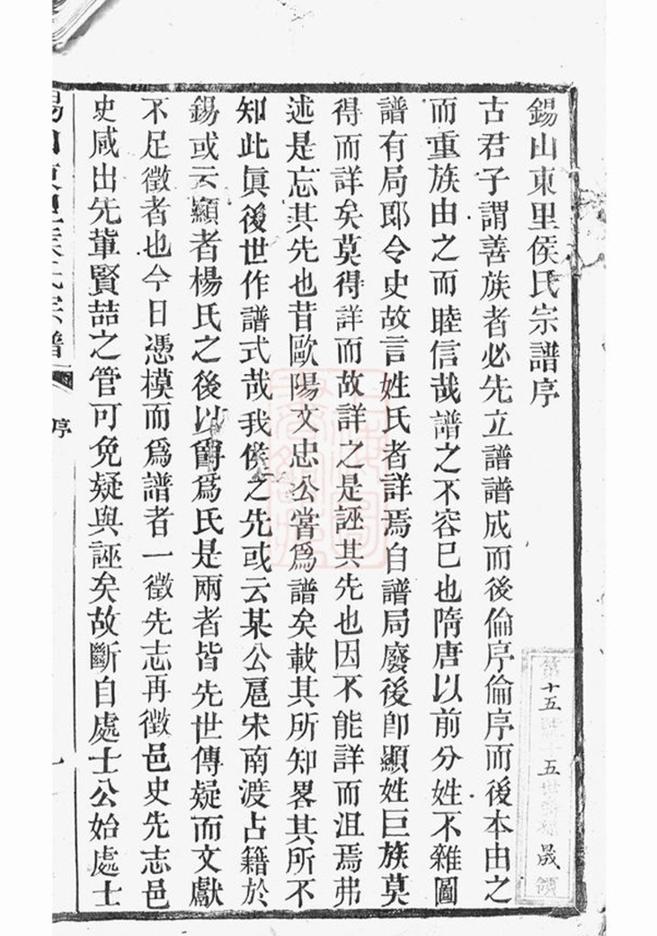 錫山東里侯氏宗譜序
古君子謂善族者必先立譜譜成而後倫序倫序而後本由之
而重族由之而睦信哉譜之不容已也隋唐以前分姓不雜圖
譜有局郎令史故言姓氏者詳焉自譜局廢後卽顯姓巨族莫
得而詳矣莫得詳而故詳之是誣其先也因不能詳而沮焉弗
述是忘其先也昔歐陽文忠公嘗爲譜矣載其所知畧其所不
知此眞後世作譜式哉我侯之先或云某公扈宋南渡占籍於
錫或云顯者楊氏之後以爵爲氏是兩者皆先世傳疑而文獻
不足徵者也今日憑模而爲譜者一徵先志再徵邑史先志邑
史咸出先輩賢喆之管可免疑與誣矣故斷自處士公始處士
錫山東里侯氏宗譜
序
十五
五世
晟領